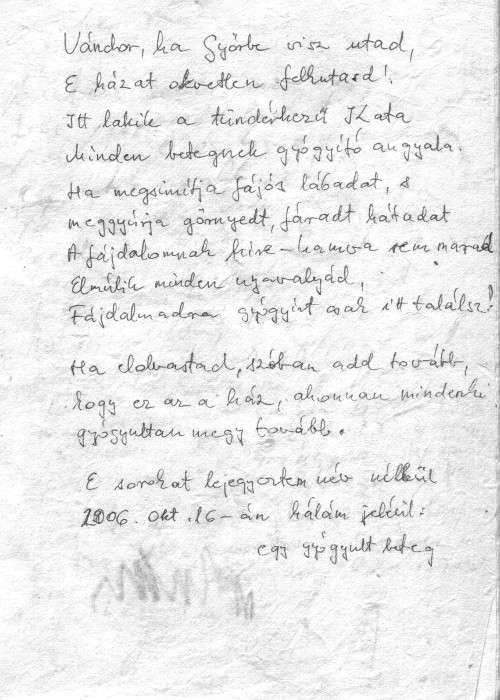 Vándor, ha Győrbe visz utad,
E házat okvetlen felkutasd!
Itt lakik a tündérkezű Kata
Minden betegnek gyógyító angyala.
Ha megsimítja fájós lábadat, s
meggyúrja görnyedt, fáradt hátadat
A fájdalomnak híre-hamva sem marad
Elmúlik minden nyavalyád,
Fájdalmadra gyógyírt csak itt találsz!
Ha elolvastad, szóban add tovább,
hogy ez az a ház, ahonnan mindenki
gyógyultan megy tovább.
E sorokat lejegyeztem név nélkül
2006. okt. 16-án hálám jeléül:
egy gyógyult beteg